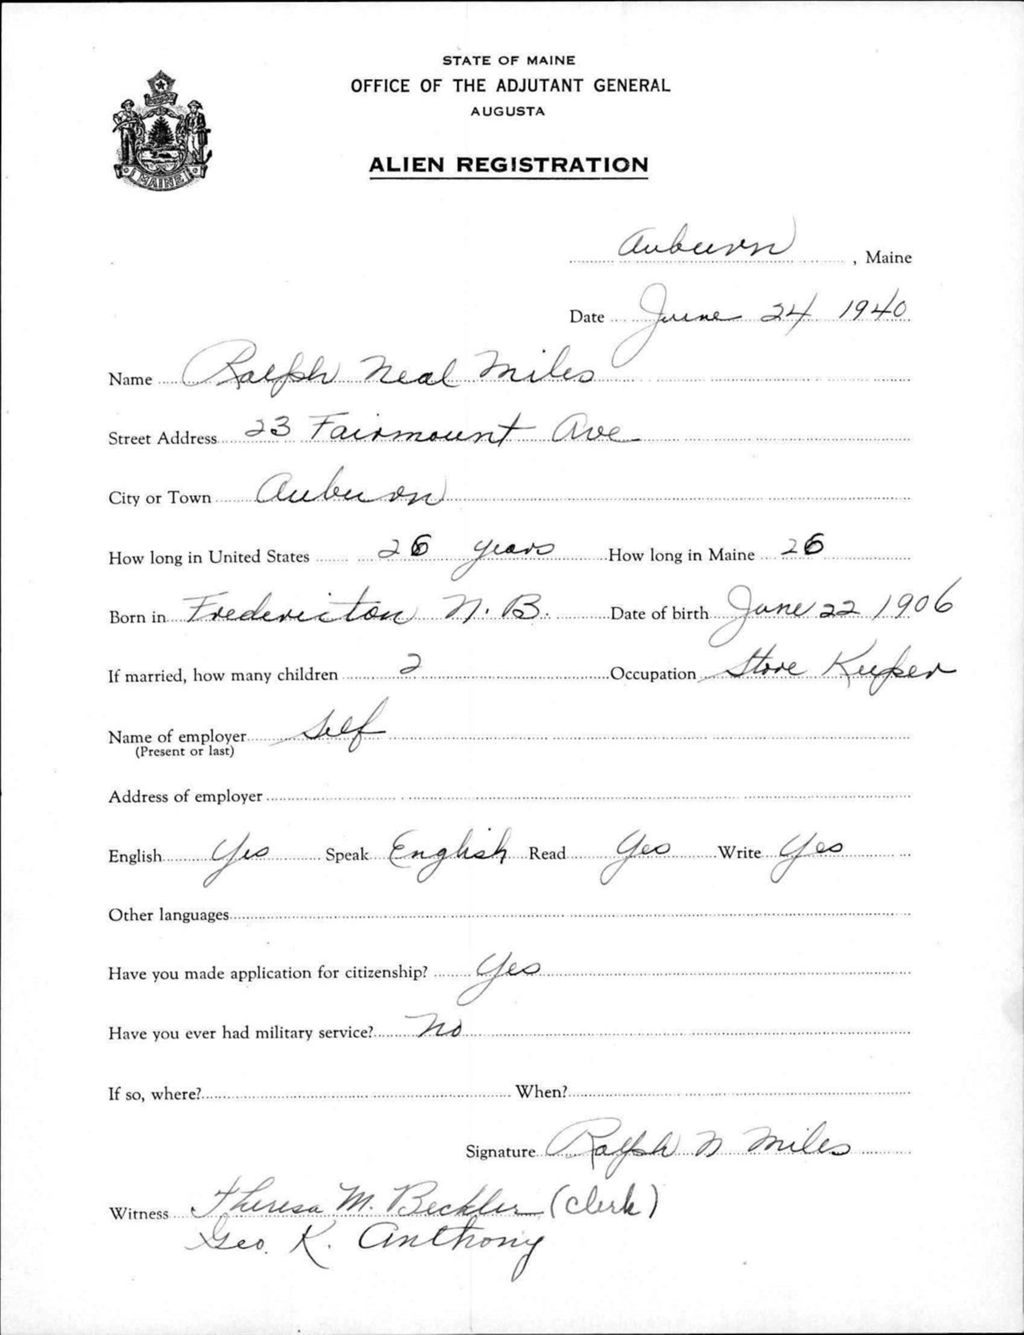 STATE OF MAINE
OFFICE OF THE ADJUTANT GENERAL
AUGUSTA
ALIEN REGISTRATION
MAINE
Auburn, Maine
Date June 24 1940
Name Ralph Neal Miles
Street Address 23 Fairmount Ave
City or Town Auburn
How long in United States 26 years How long in Maine 26
Born in Fredericton N.B. Date of birth June 22 1906
If married, how many children 2 Occupation Store Keeper
Name of employer Self
(Present or last)
Address of employer
English Yes Speak English Read Yes Write Yes
Other languages
Have you made application for citizenship? Yes
Have you ever had military service? No
If so, where? When?
Signature Ralph N Miles
Witness Theresa M. Beckler (Clerk)
Geo. K. Anthony